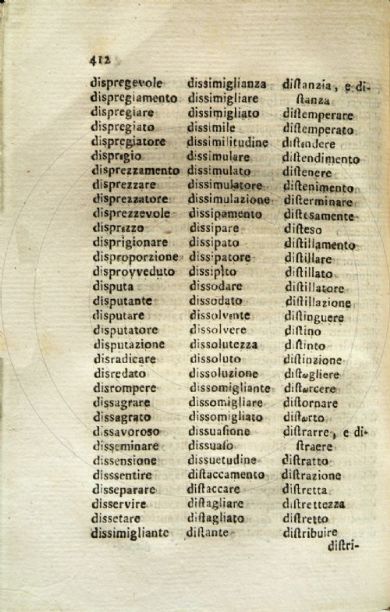 412
dispregevole
dispregiamento
dispregiare
dispregiato
dispregiatore
dispregio
disprezzamento
disprezzare
disprezzatore
disprezzevole
disprezzo
disprigionare
disproporzione
disprovveduto
disputa
disputante
disputare
disputatore
disputazione
disradicare
disredato
disrompere
dissagrare
dissagrato
dissavoroso
disseminare
dissensione
disssentire
disseparare
disservire
dissetare
dissimigliante
dissimiglianza
dissimigliare
dissimigliato
dissimile
dissimilitudine
dissimulare
dissimulato
dissimulatore
dissimulazione
dissipamento
dissipare
dissipato
dissipatore
dissipito
dissodare
dissodato
dissolvente
dissolvere
dissolutezza
dissoluto
dissoluzione
dissomigliante
dissomigliare
dissomigliato
dissuasione
dissuaso
dissuetudine
diſtaccamento
diſtaccare
diſtagliare
diſtagliato
diſtante
diſtanzia, e di-
ſtanza
diſtemperare
diſtemperato
diſtendere
diſtendimento
diſtenere
diſtenimento
diſterminare
diſtesamente
diſteso
diſtillamento
diſtillare
diſtillato
diſtillatore
diſtillazione
diſtinguere
diſtino
diſtinto
diſtinzione
diſtogliere
diſtorcere
diſtornare
diſtorto
diſtrarre, e di-
ſtraere
diſtratto
diſtrazione
diſtretta
diſtrettezza
diſtretto
diſtribuire
diſtri-